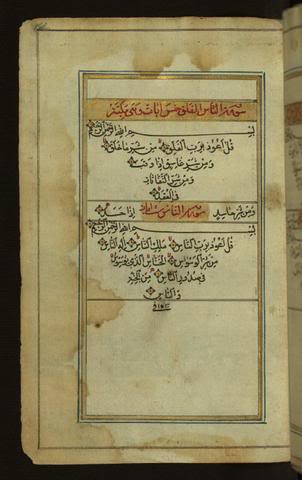 سورة الفلق خمس ايات وهى مكية
بسم الله الرحمن الرحيم
قل اعوذ برب الفلق من شر ما خلق
ومن شر غاسق اذا وقب
ومن شر النفاثات
فى العقد
ومن شر حاسد سورة الناس ست ايات اذا حسد
بسم الله الرحمن الرحيم
قل اعوذ برب الناس ملك الناس اله الناس
من شر الوسواس الخناس الذى يوسوس
فى صدور الناس من الجنة
والناس